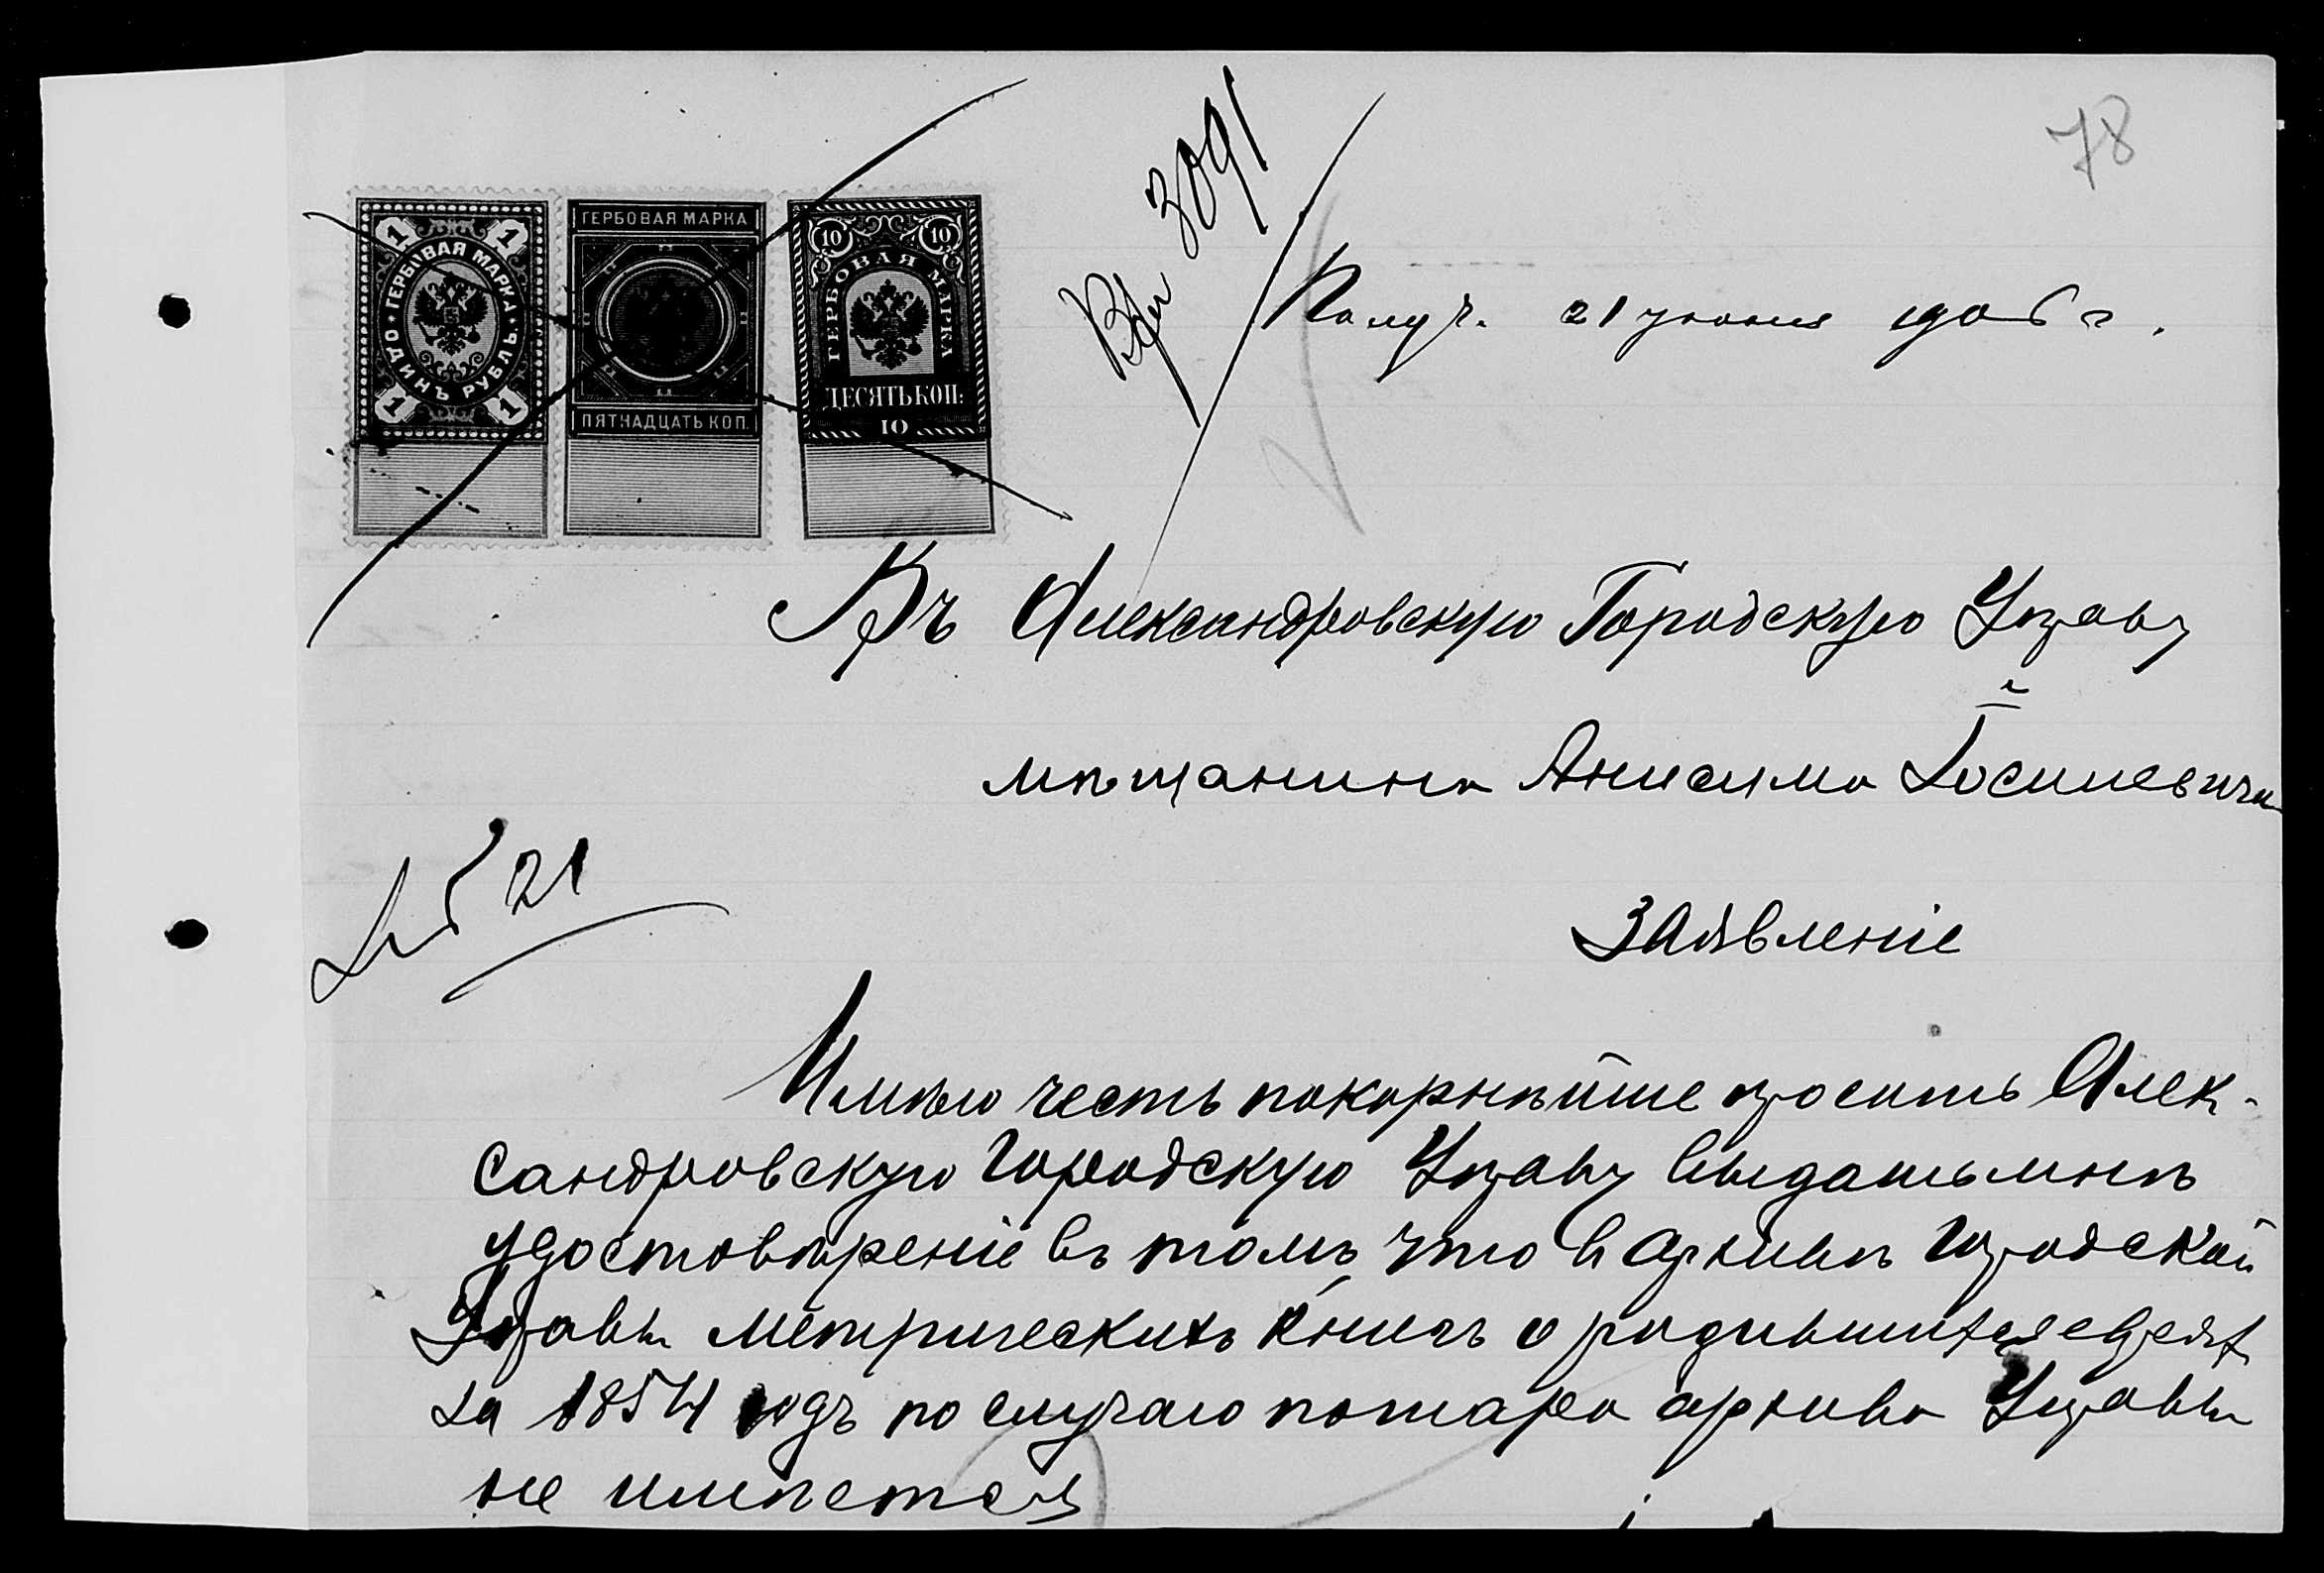 78
Вх 3091
Получ. 21 іюня 1906 г.
1 1
ГЕРБОВАЯ МАРКА
ОДИНЪ РУБЛЬ
1 1
ГЕРБОВАЯ МАРКА
ПЯТНАДЦАТЬ КОП.
10 10
ГЕРБОВАЯ МАРКА
ДЕСЯТЬ КОП:
10
Въ Александровскую Городскую Управу
мѣщанина Анисима
21
Заявленіе
Имѣю честь покорнѣйше просить Алек-
сандровскую Городскую Управу выдать мнѣ
удостовѣреніе въ томъ, что в архивѣ Городской
Управы метрическихъ книгъ о родившихся евреях
за 1854 годъ по случаю пожара архива Управы
не имѣется